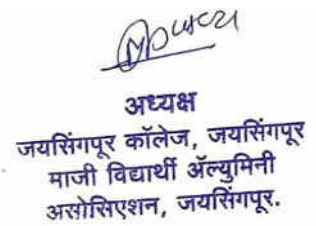 अध्यक्ष
जयसिंगपूर कॉलेज, जयसिंगपूर
माजी विद्यार्थी ॲल्युमिनी
असोसिएशन, जयसिंगपूर.